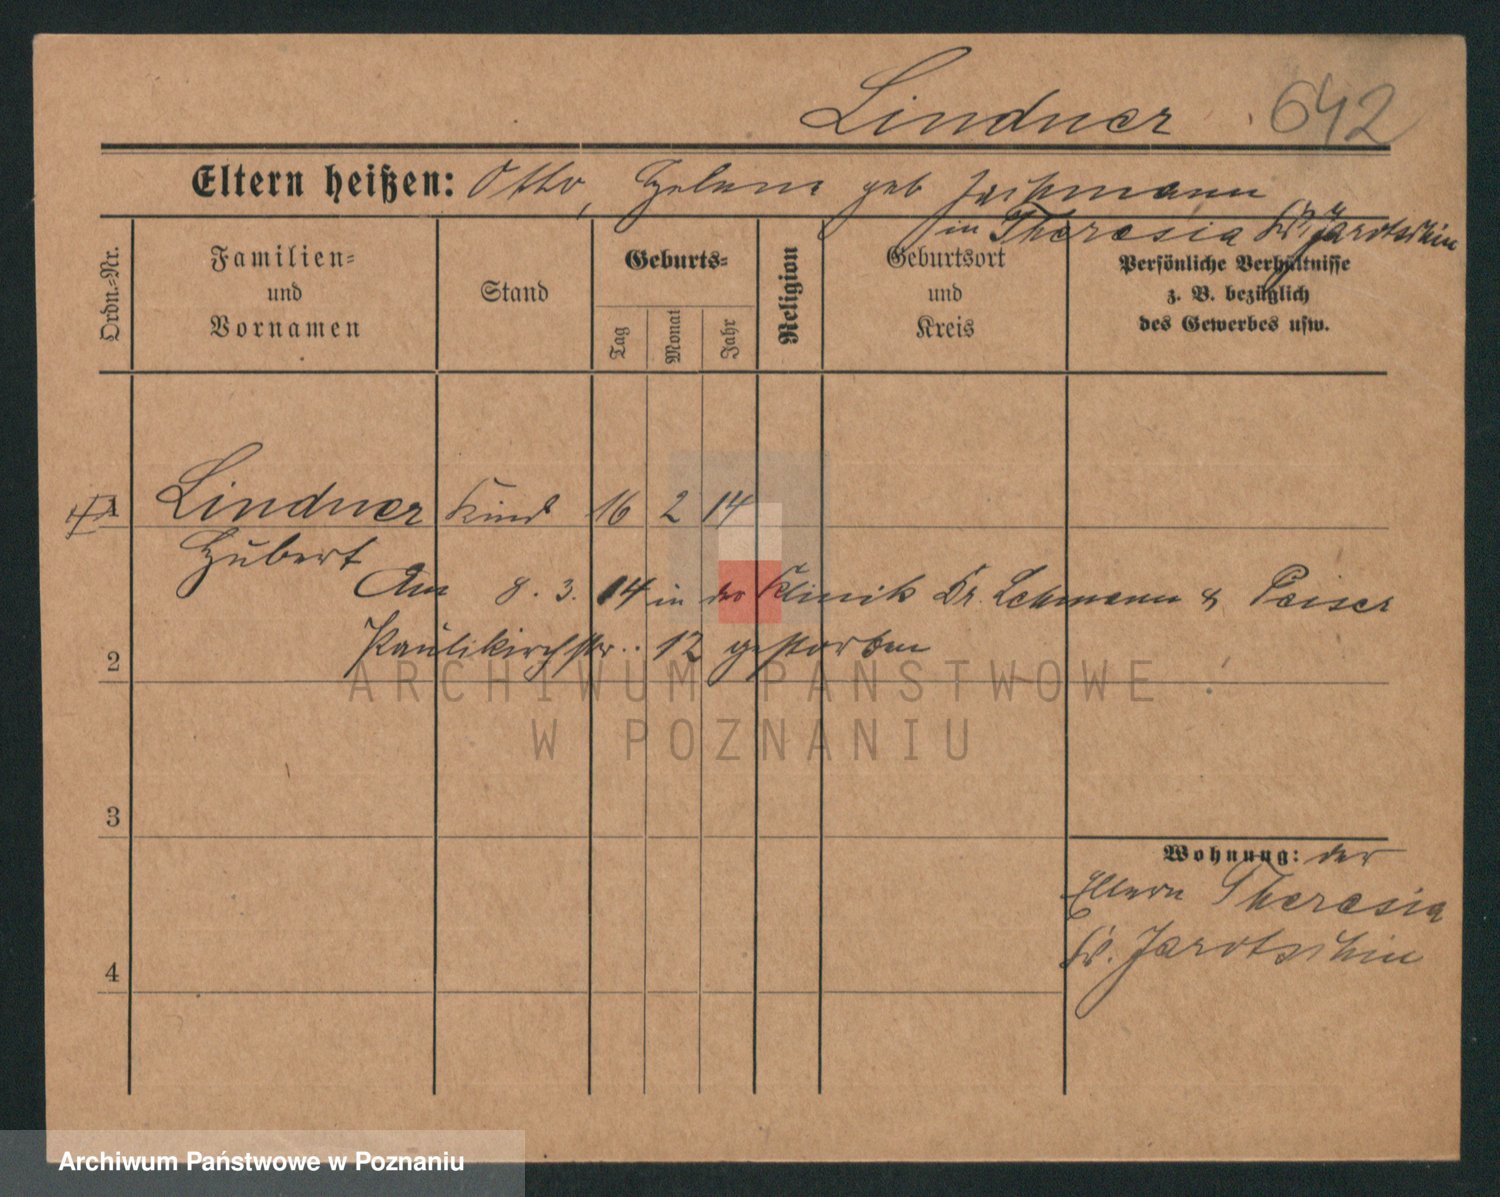 Lindner 642
Eltern heißen: Otto, Helene geb
in Theresia Kr. Jarotschin
Ordn.-Nr.
Familien-
und
Vornamen
Stand
Geburts-
Tag
Monat
Jahr
Religion
Geburtsort
und
Kreis
Persönliche Verhältnisse
z. B. bezüglich
des Gewerbes usw.
1 Lindner Kind 16 2 14
Hubert
Am 8. 3. 14 in der Klinik Dr. Lehmann & Peiser
Paulikirchstr. 12 gestorben
2
3
4
Wohnung: der
Eltern Theresia
Kr. Jarotschin
ARCHIWUM PAŃSTWOWE
W POZNANIU
Archiwum Państwowe w Poznaniu